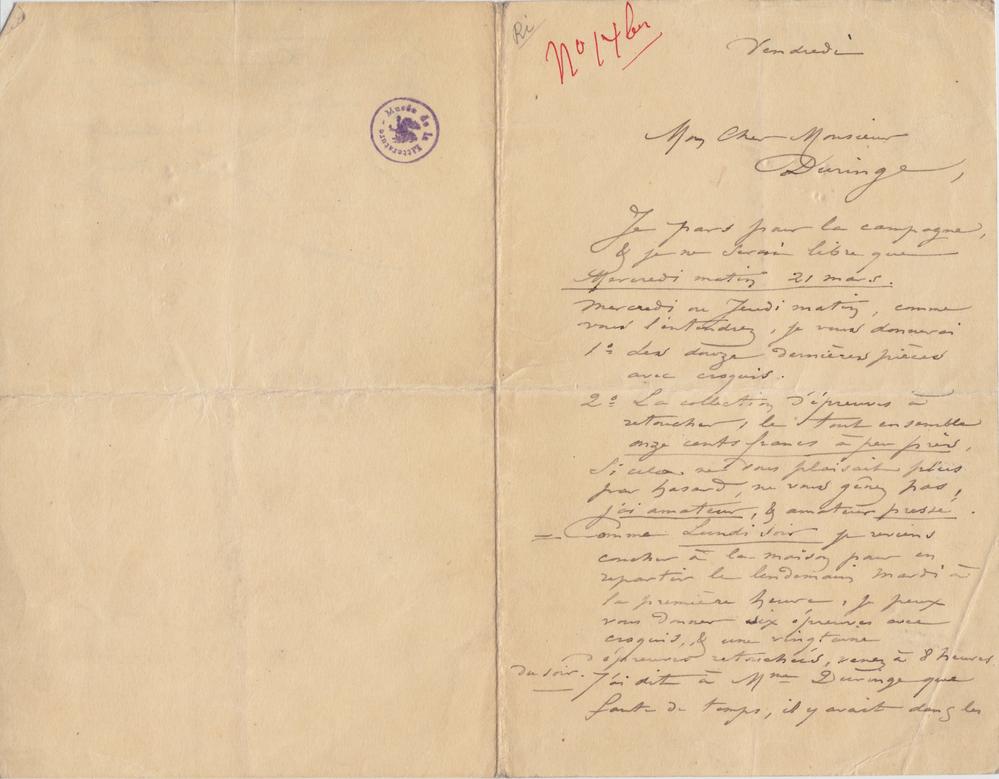 Musée de la Littérature
Ri
No 14 ter
Vendredi
Mon Cher Monsieur
Düringe,
Je pars pour la campagne,
& je ne serai libre que
Mercredi matin 21 mars.
Mercredi ou Jeudi matin, comme
vous l'entendrez, je vous donnerai
1º Les douze dernières pièces
avec croquis.
2º La collection d'épreuves à
retoucher, le tout ensemble
onze cents francs à peu près.
Si cela ne vous plaisait plus
par hasard, ne vous gênez pas,
j'ai amateur, & amateur pressé.
= Comme Lundi soir je reviens
coucher à la maison pour en
repartir le lendemain Mardi à
la première heure, je peux
vous donner six épreuves avec
croquis, & une vingtaine
d'épreuves retouchées, venez à 8 heures
du soir. J'ai dit à Mme Düringe que
faute de temps, il y avait dans les